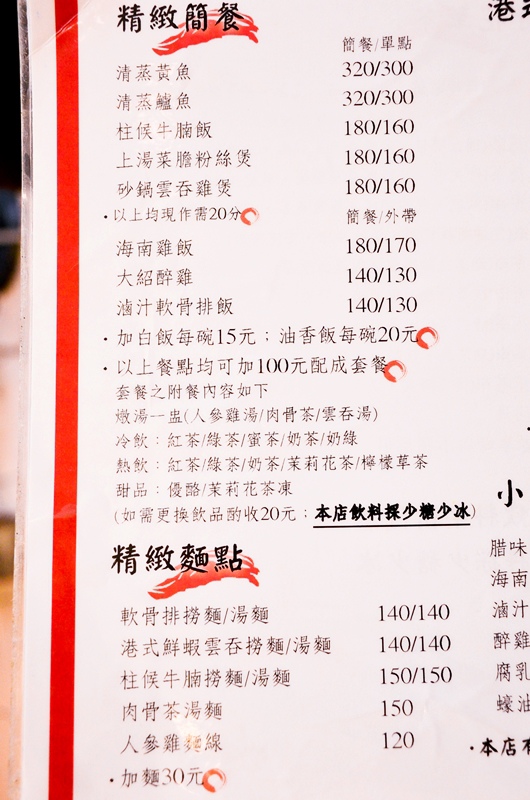 精緻簡餐
簡餐/單點
清蒸黃魚 320/300
清蒸鱸魚 320/300
柱候牛腩飯 180/160
上湯菜膽粉絲煲 180/160
砂鍋雲吞雞煲 180/160
·以上均現作需20分
簡餐/外帶
海南雞飯 180/170
大紹醉雞 140/130
滷汁軟骨排飯 140/130
·加白飯每碗15元；油香飯每碗20元
·以上餐點均可加100元配成套餐
套餐之附餐內容如下
燉湯一盅(人參雞湯/肉骨茶/雲吞湯)
冷飲：紅茶/綠茶/蜜茶/奶茶/奶綠
熱飲：紅茶/綠茶/奶茶/茉莉花茶/檸檬草茶
甜品：優酪/茉莉花茶凍
(如需更換飲品酌收20元；本店飲料採少糖少冰)
精緻麵點
軟骨排撈麵/湯麵 140/140
港式鮮蝦雲吞撈麵/湯麵 140/140
柱候牛腩撈麵/湯麵 150/150
肉骨茶湯麵 150
人參雞麵線 120
·加麵30元
港式
小
腊味
海南
滷汁
醉雞
腐乳
蠔油
·本店有